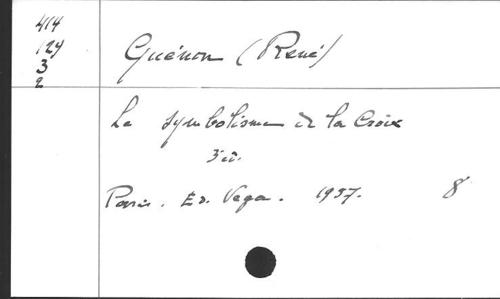 414
124
3
2
Guénon (René)
Le symbolisme de la Croix
3 éd.
Paris. Ed. Vega. 1957. 8°